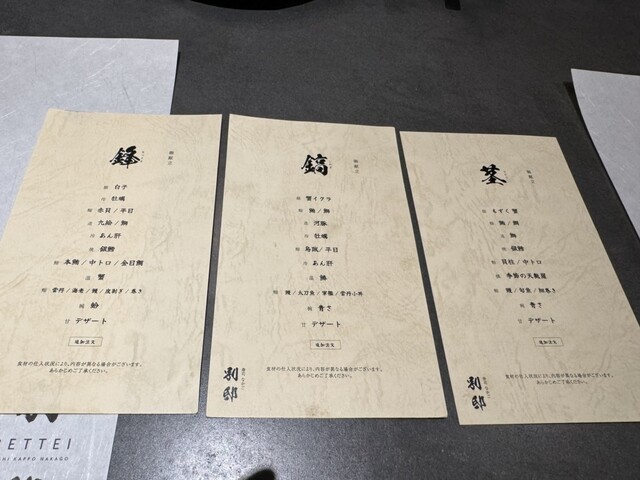 鋒
御献立
白子
牡蠣
鮮 赤貝/平目
九絵/鯛
あん肝
銀鱈
鮮 本鮪/中トロ/金目鯛
温 蟹
鮮 雲丹/海老/鰻/皮剥ぎ/巻き
椀 蛤
甘 デザート
追加注文
食材の仕入状況により、内容が異なる場合がございます。
あらかじめご了承ください。
鎬
御献立
蟹イクラ
鮪/鯛
河豚
牡蠣
平目
あん肝
温
鮮 鰻/太刀魚/車海老/雲丹小丼
椀 青さ
甘 デザート
追加注文
食材の仕入状況により、内容が異なる場合がございます。
あらかじめご了承ください。
別邸
茎
御献立
もずく蟹
鮪/鯛
銀鱈
貝柱/中トロ
温 季節の天麩羅
鮮 鰻/旬魚/細巻き
椀 青さ
甘 デザート
追加注文
食材の仕入状況により、内容が異なる場合がございます。
あらかじめご了承ください。
別邸
BETTEI
KAPPO NAKAGO